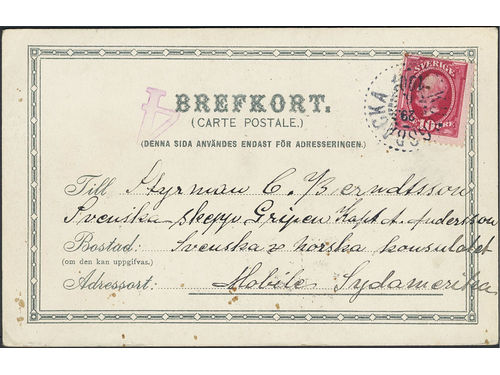 SVERIGE
10 ÖRE
BREFKORT.
(CARTE POSTALE.)
(DENNA SIDA ANVÄNDES ENDAST FÖR ADRESSERINGEN.)
Till Styrman C. Berndtsson
Svenska skepp Gripen Kapt A. Andersson
Bostad: Svenska & norska konsulatet
(om den kan uppgifvas.)
Adressort: Mobile Sydamerika